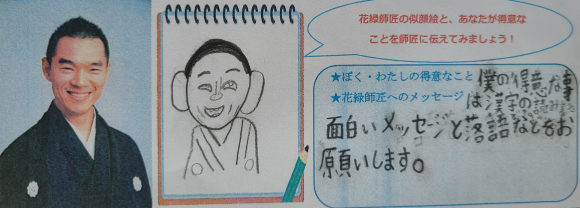 花緑師匠の似顔絵と、あなたが得意な
ことを師匠に伝えてみましょう！
★ぼく・わたしの得意なこと 僕の得意な事
★花緑師匠へのメッセージ は漢字の読み
面白いメッセージと落語などをお
願いします。